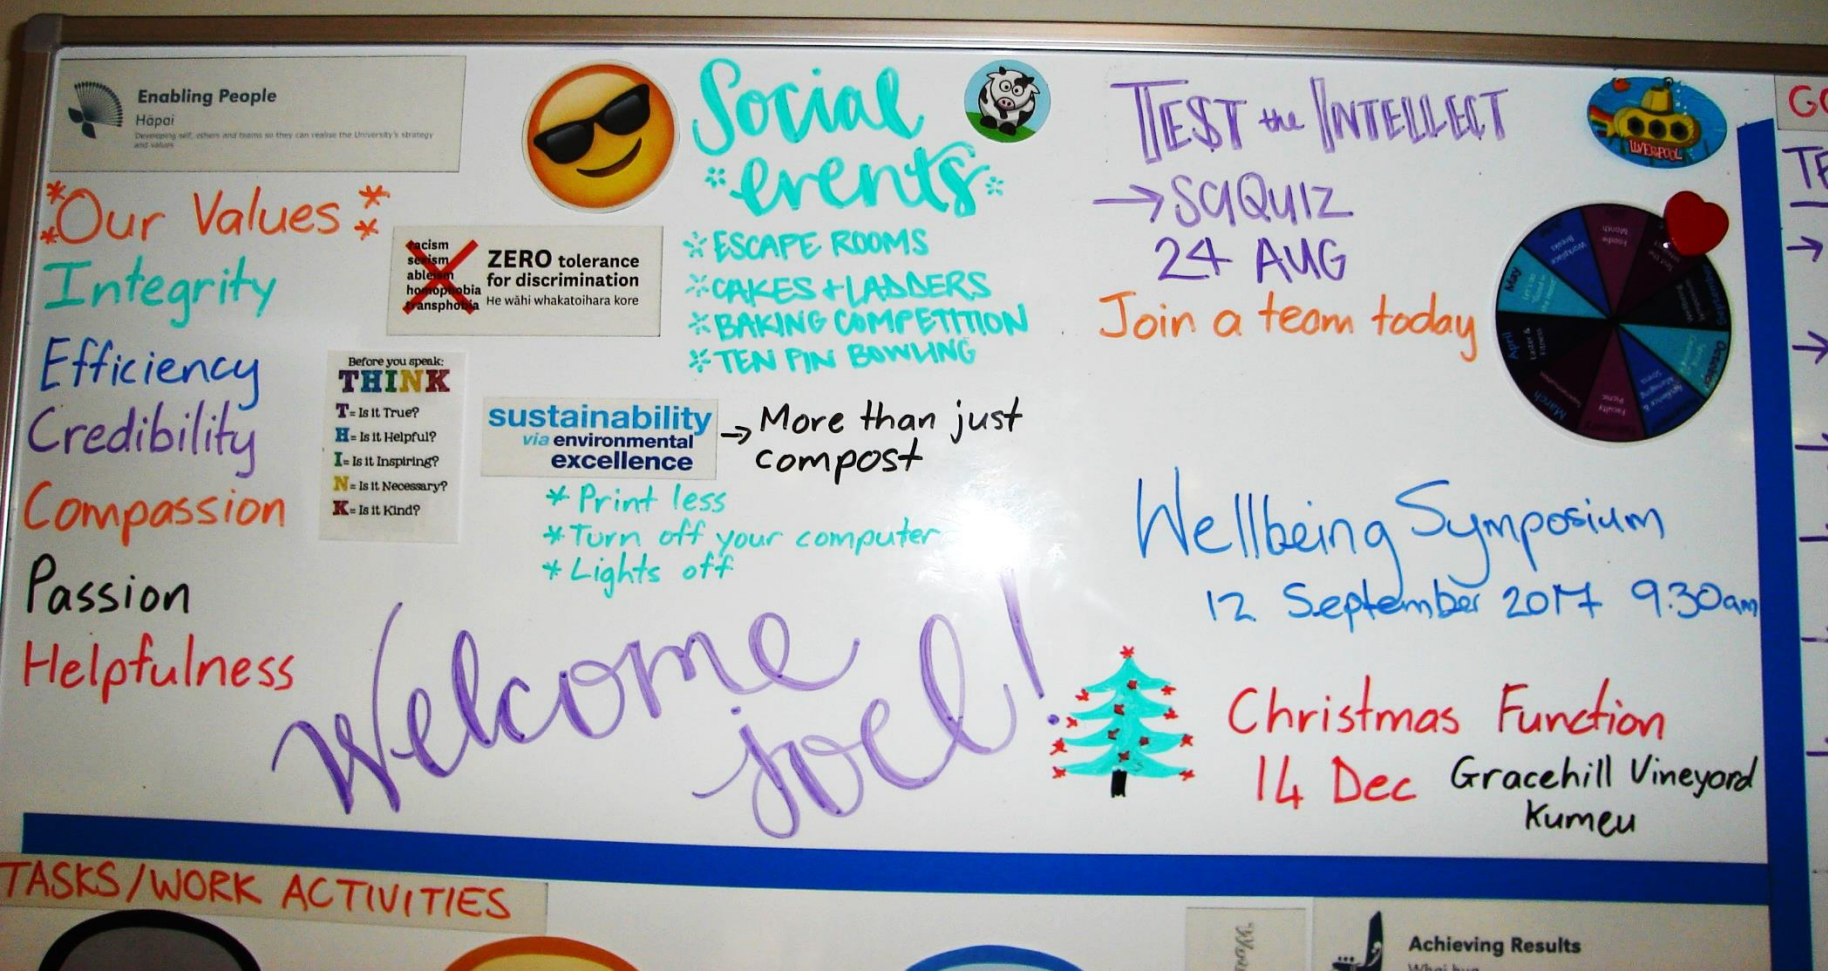 Enabling People
Hāpai
Developing self, others and teams so they can realise the University's strategy
and values
Our Values
Integrity
Efficiency
Credibility
Compassion
Passion
Helpfulness
racism
sexism
ableism
homophobia
transphobia
ZERO tolerance
for discrimination
He wāhi whakatoihara kore
Before you speak:
THINK
T= Is it True?
H= Is it Helpful?
I= Is it Inspiring?
N= Is it Necessary?
K= Is it Kind?
Social
events
* ESCAPE ROOMS
* CAKES + LADDERS
* BAKING COMPETITION
* TEN PIN BOWLING
sustainability
via environmental
excellence
→ More than just
compost
* Print less
* Turn off your computer
* Lights off
Welcome
joel!
TEST the INTELLECT
→ SCIQUIZ
24 AUG
Join a team today
LIVERPOOL
May
April
March
October
Wellbeing Symposium
12 September 2017 9.30am
Christmas Function
14 Dec Gracehill Vineyard
Kumeu
TASKS/WORK ACTIVITIES
Achieving Results